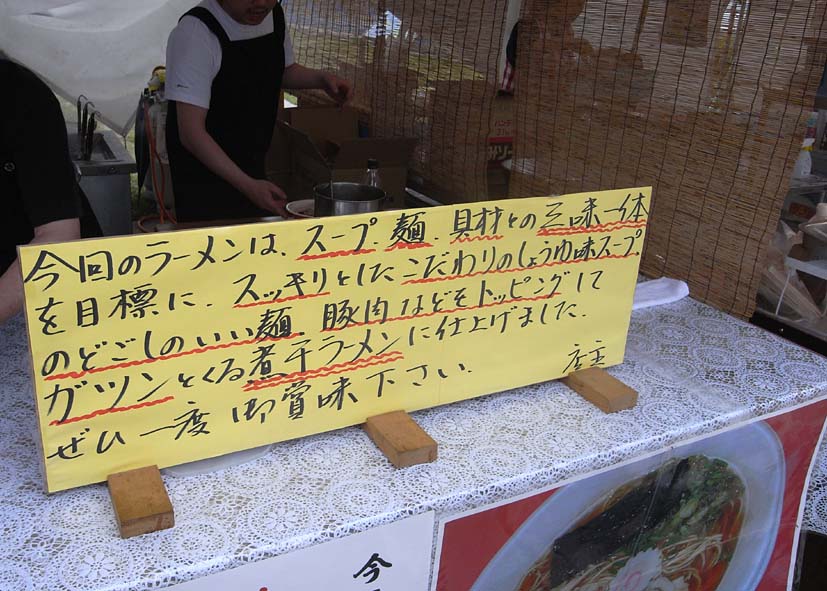 今回のラーメンは、スープ、麺、具材との三味一体
を目標に、スッキリとしたこだわりのしょうゆ味スープ、
のどごしのいい麺、豚肉などをトッピングして
ガツンとくる煮干ラーメンに仕上げました。
ぜひ一度御賞味下さい。 店主
今